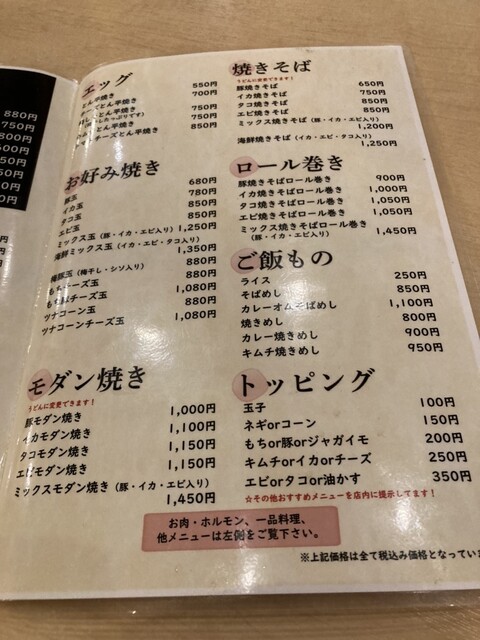 880円
750円
800円
エッグ
とん平焼き 550円
とん平焼き 700円
とん平焼き 750円
とん平焼き 750円
チーズとん平焼き 850円
お好み焼き
豚玉 680円
イカ玉 780円
タコ玉 850円
エビ玉 850円
ミックス玉(豚・イカ・エビ入り) 1,250円
海鮮ミックス玉(イカ・エビ・タコ入り) 1,350円
梅豚玉(梅干し・シソ入り) 880円
もちチーズ玉 880円
もち豚チーズ玉 1,080円
ツナコーン玉 880円
ツナコーンチーズ玉 1,080円
モダン焼き
うどんに変更できます!
豚モダン焼き 1,000円
イカモダン焼き 1,100円
タコモダン焼き 1,150円
エビモダン焼き 1,150円
ミックスモダン焼き(豚・イカ・エビ入り)
1,450円
焼きそば
うどんに変更できます!
豚焼きそば 650円
イカ焼きそば 750円
タコ焼きそば 850円
エビ焼きそば 850円
ミックス焼きそば(豚・イカ・エビ入り)
1,200円
海鮮焼きそば(イカ・エビ・タコ入り)
1,250円
ロール巻き
豚焼きそばロール巻き 900円
イカ焼きそばロール巻き 1,000円
タコ焼きそばロール巻き 1,050円
エビ焼きそばロール巻き 1,050円
ミックス焼きそばロール巻き 1,450円
(豚・イカ・エビ入り)
ご飯もの
ライス 250円
そばめし 850円
カレーオムそばめし 1,100円
焼きめし 800円
カレー焼きめし 900円
キムチ焼きめし 950円
トッピング
玉子 100円
ネギorコーン 150円
もちor豚orジャガイモ 200円
キムチorイカorチーズ 250円
エビorタコor油かす 350円
☆その他おすすめメニューを店内に提示してます!
お肉・ホルモン、一品料理、
他メニューは左側をご覧下さい。
※上記価格は全て税込み価格となっていま